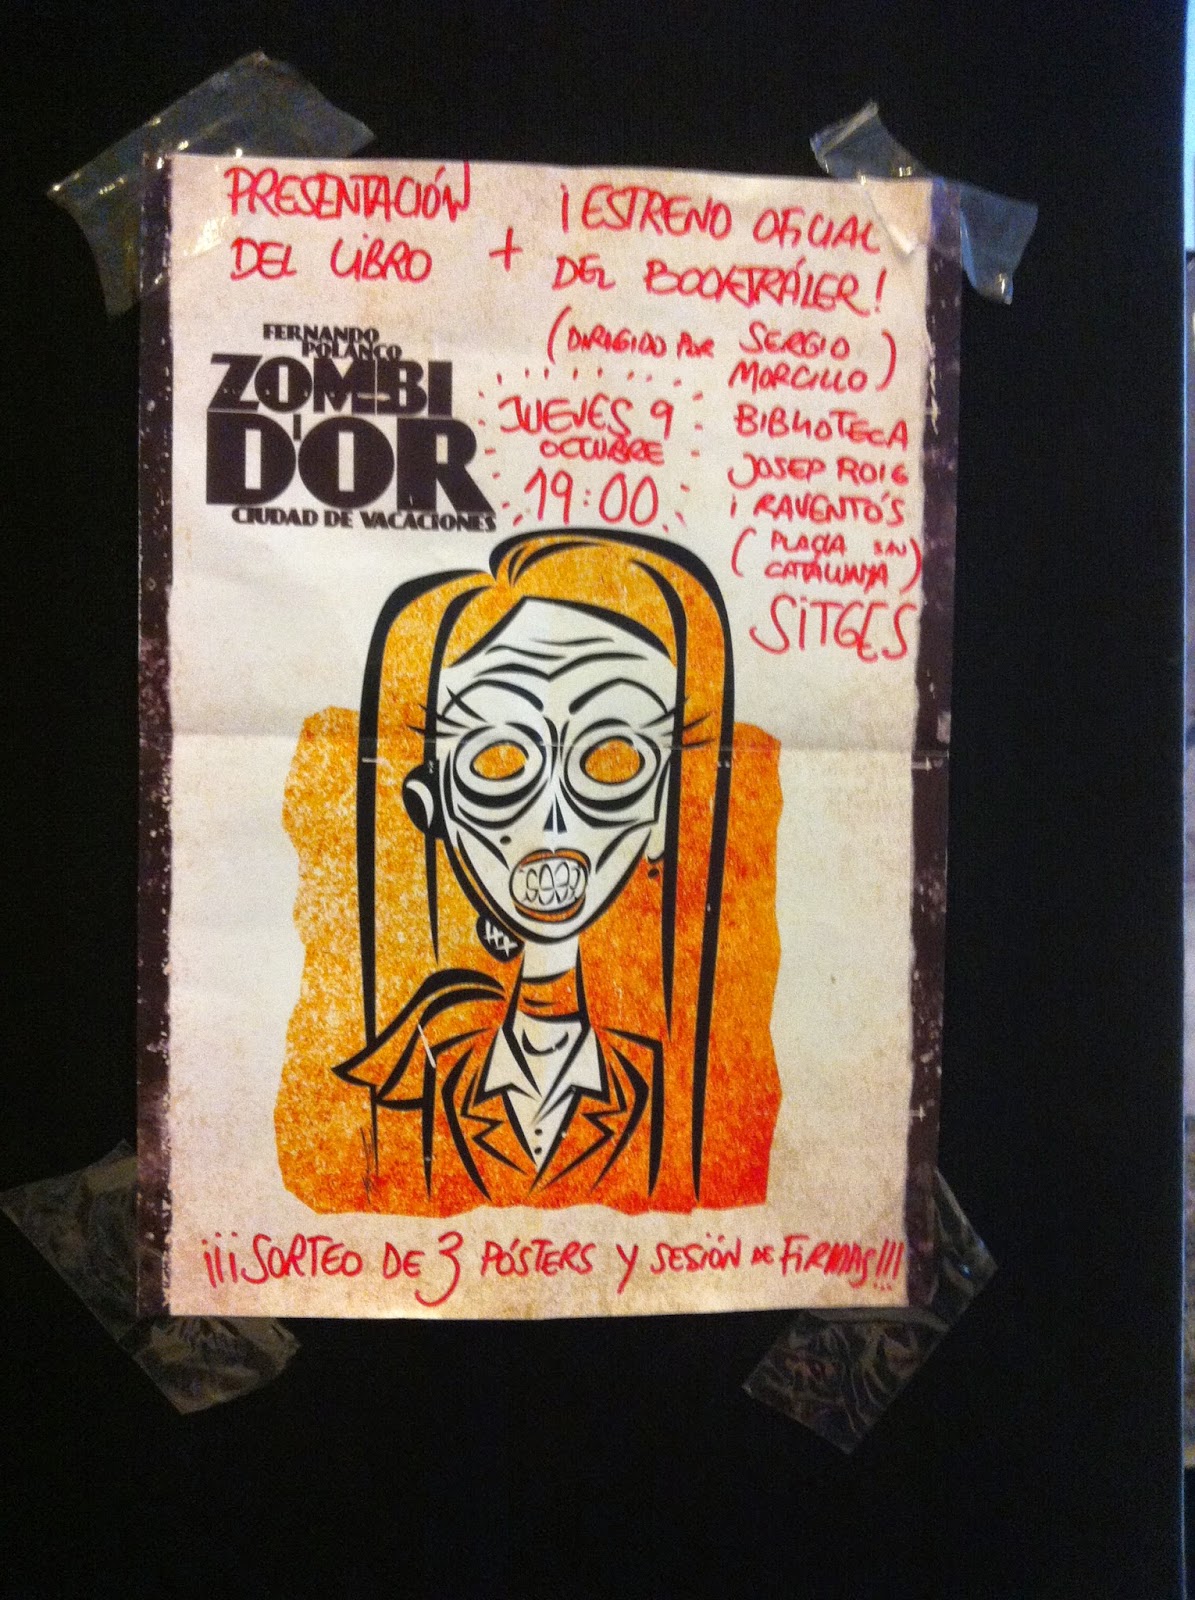 PRESENTACIÓN
DEL LIBRO
+
¡ESTRENO OFICIAL
DEL BOOKTRÁLER!
(DIRIGIDO POR SERGIO
MORCILLO)
FERNANDO
POLANCO
ZOMBI
D'OR
CIUDAD DE VACACIONES
JUEVES 9
OCTUBRE
19:00
BIBLIOTECA
JOSEP ROIG
i RAVENTÓS
(PLAÇA
CATALUNYA)
SITGES
¡¡¡SORTEO DE 3 PÓSTERS Y SESIÓN DE FIRMAS!!!